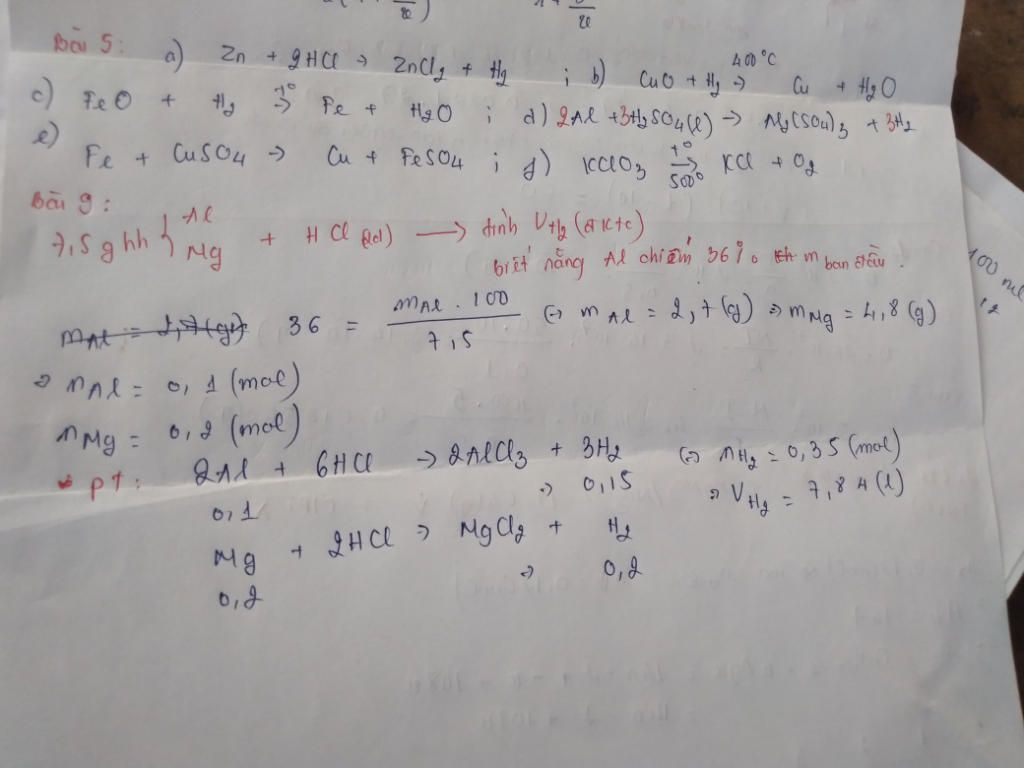 Bài 5: a) Zn + 2HCl → ZnCl2 + H2 ; b) CuO + H2 400°C → Cu + H2O
c) FeO + H2 t° → Fe + H2O ; d) 2Al + 3H2SO4(l) → Al2(SO4)3 + 3H2
e) Fe + CuSO4 → Cu + FeSO4 ; g) KClO3 t° → 500° KCl + O2
Bài 9:
7,5g hh { Al Mg + HCl (ld) → tính VH2 (đktc)
biết rằng Al chiếm 36% m ban đầu.
mAl = 2,7(g) 36 = mAl . 100 / 7,5 (=) mAl = 2,7(g) => mMg = 4,8(g)
=> nAl = 0,1 (mol)
nMg = 0,2 (mol)
pt: 2Al + 6HCl → 2AlCl3 + 3H2 (=) nH2 = 0,35 (mol)
0,1 => 0,15 => VH2 = 7,84 (l)
Mg + 2HCl → MgCl2 + H2
0,2 => 0,2
100 ml